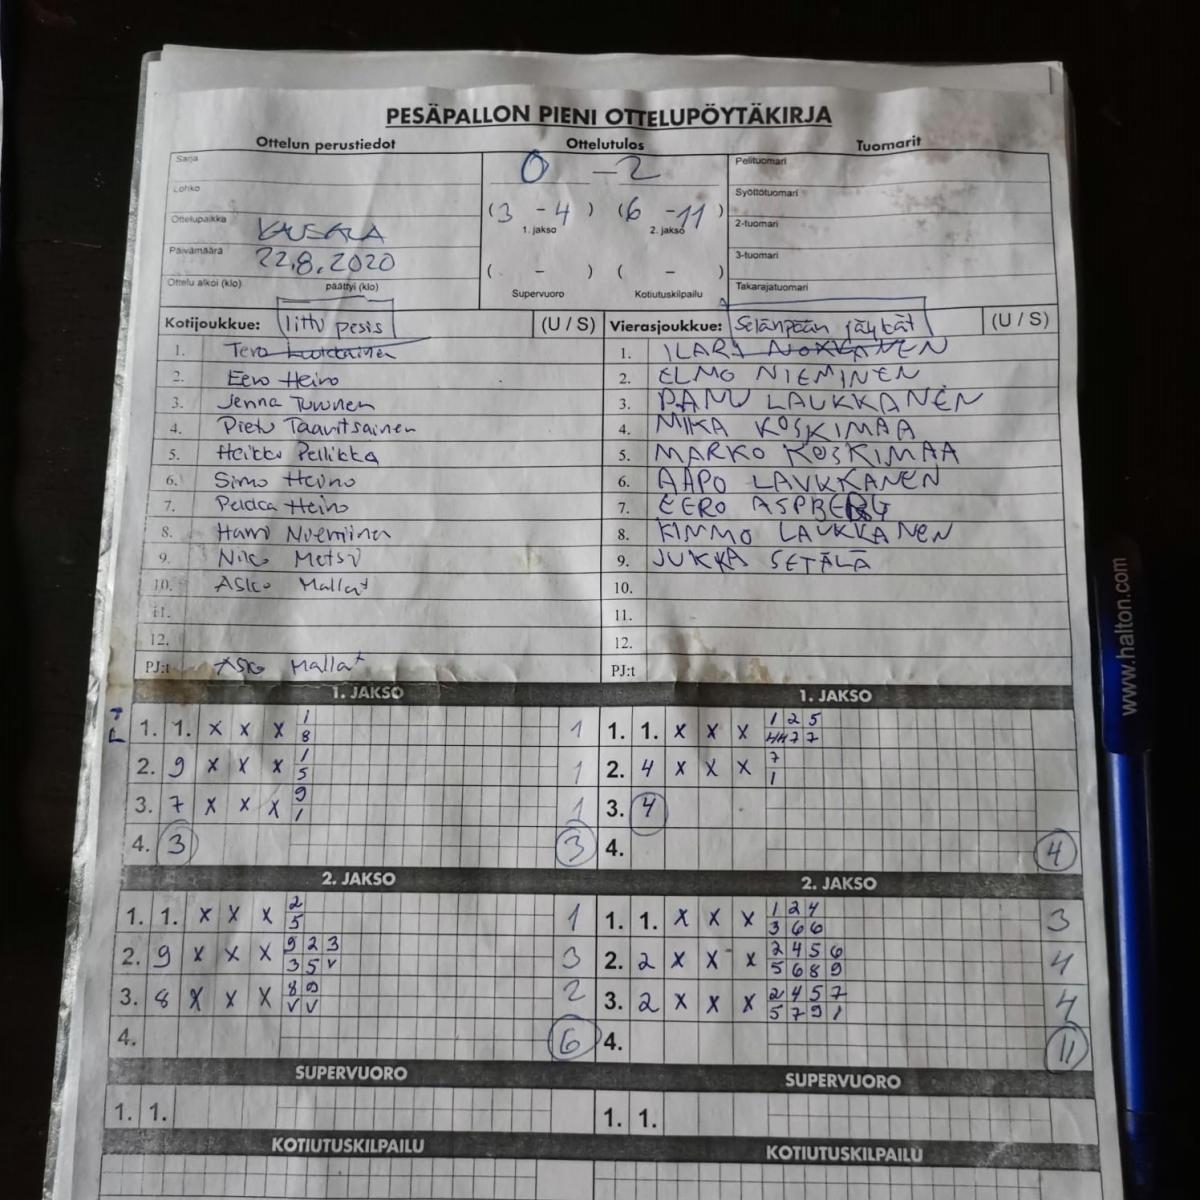 PESÄPALLON PIENI OTTELUPÖYTÄKIRJA
Ottelun perustiedot Ottelutulos Tuomarit
Sarja
Lohko
Ottelupaikka
Päivämäärä 22.8.2020
Ottelu alkoi (klo) päättyi (klo)
0 - 2
(3 - 4) (6 - 11)
1. jakso 2. jakso
( - ) ( - )
Supervuoro Kotiutuskilpailu
Pelituomari
Syöttötuomari
2-tuomari
3-tuomari
Takarajatuomari
Kotijoukkue: Iitty pesis (U / S)
1. Tero
2. Eero Heino
3. Jenna Tuununen
4. Pietu Taavitsainen
5. Heikki Pellikka
6. Simo Heino
7. Pekka Heino
8. Harri Nieminen
9. Niko Metso
10. Asko Mallat
11.
12.
PJ:t Asko Mallat
Vierasjoukkue: Selänpään jäykät (U / S)
1. ILARI NOKKANEN
2. ELMO NIEMINEN
3. PANU LAUKKANEN
4. MIKA KOSKIMAA
5. MARKO KOSKIMAA
6. AAPO LAUKKANEN
7. EERO ASPBERG
8. KIMMO LAUKKANEN
9. JUKKA SETÄLÄ
10.
11.
12.
PJ:t
1. JAKSO
1. 1. x x x 1 1
8
2. 9 x x x 1 1
5
3. 7 x x x 9 1
1
4. 3 3
1. JAKSO
1. 1. x x x 1 2 5
7 7
2. 4 x x x 7
1
3. 4
4. 4
2. JAKSO
1. 1. x x x 2 1
5
2. 9 x x x 9 2 3 3
3 5 v
3. 8 x x x 8 9 2
v v
4. 6
2. JAKSO
1. 1. x x x 1 2 4 3
3 6 6
2. 2 x x x 2 4 5 6 4
5 6 8 9
3. 2 x x x 2 4 5 7 4
5 7 9 1
4. 11
SUPERVUORO
1. 1.
SUPERVUORO
1. 1.
KOTIUTUSKILPAILU
KOTIUTUSKILPAILU
www.halton.com